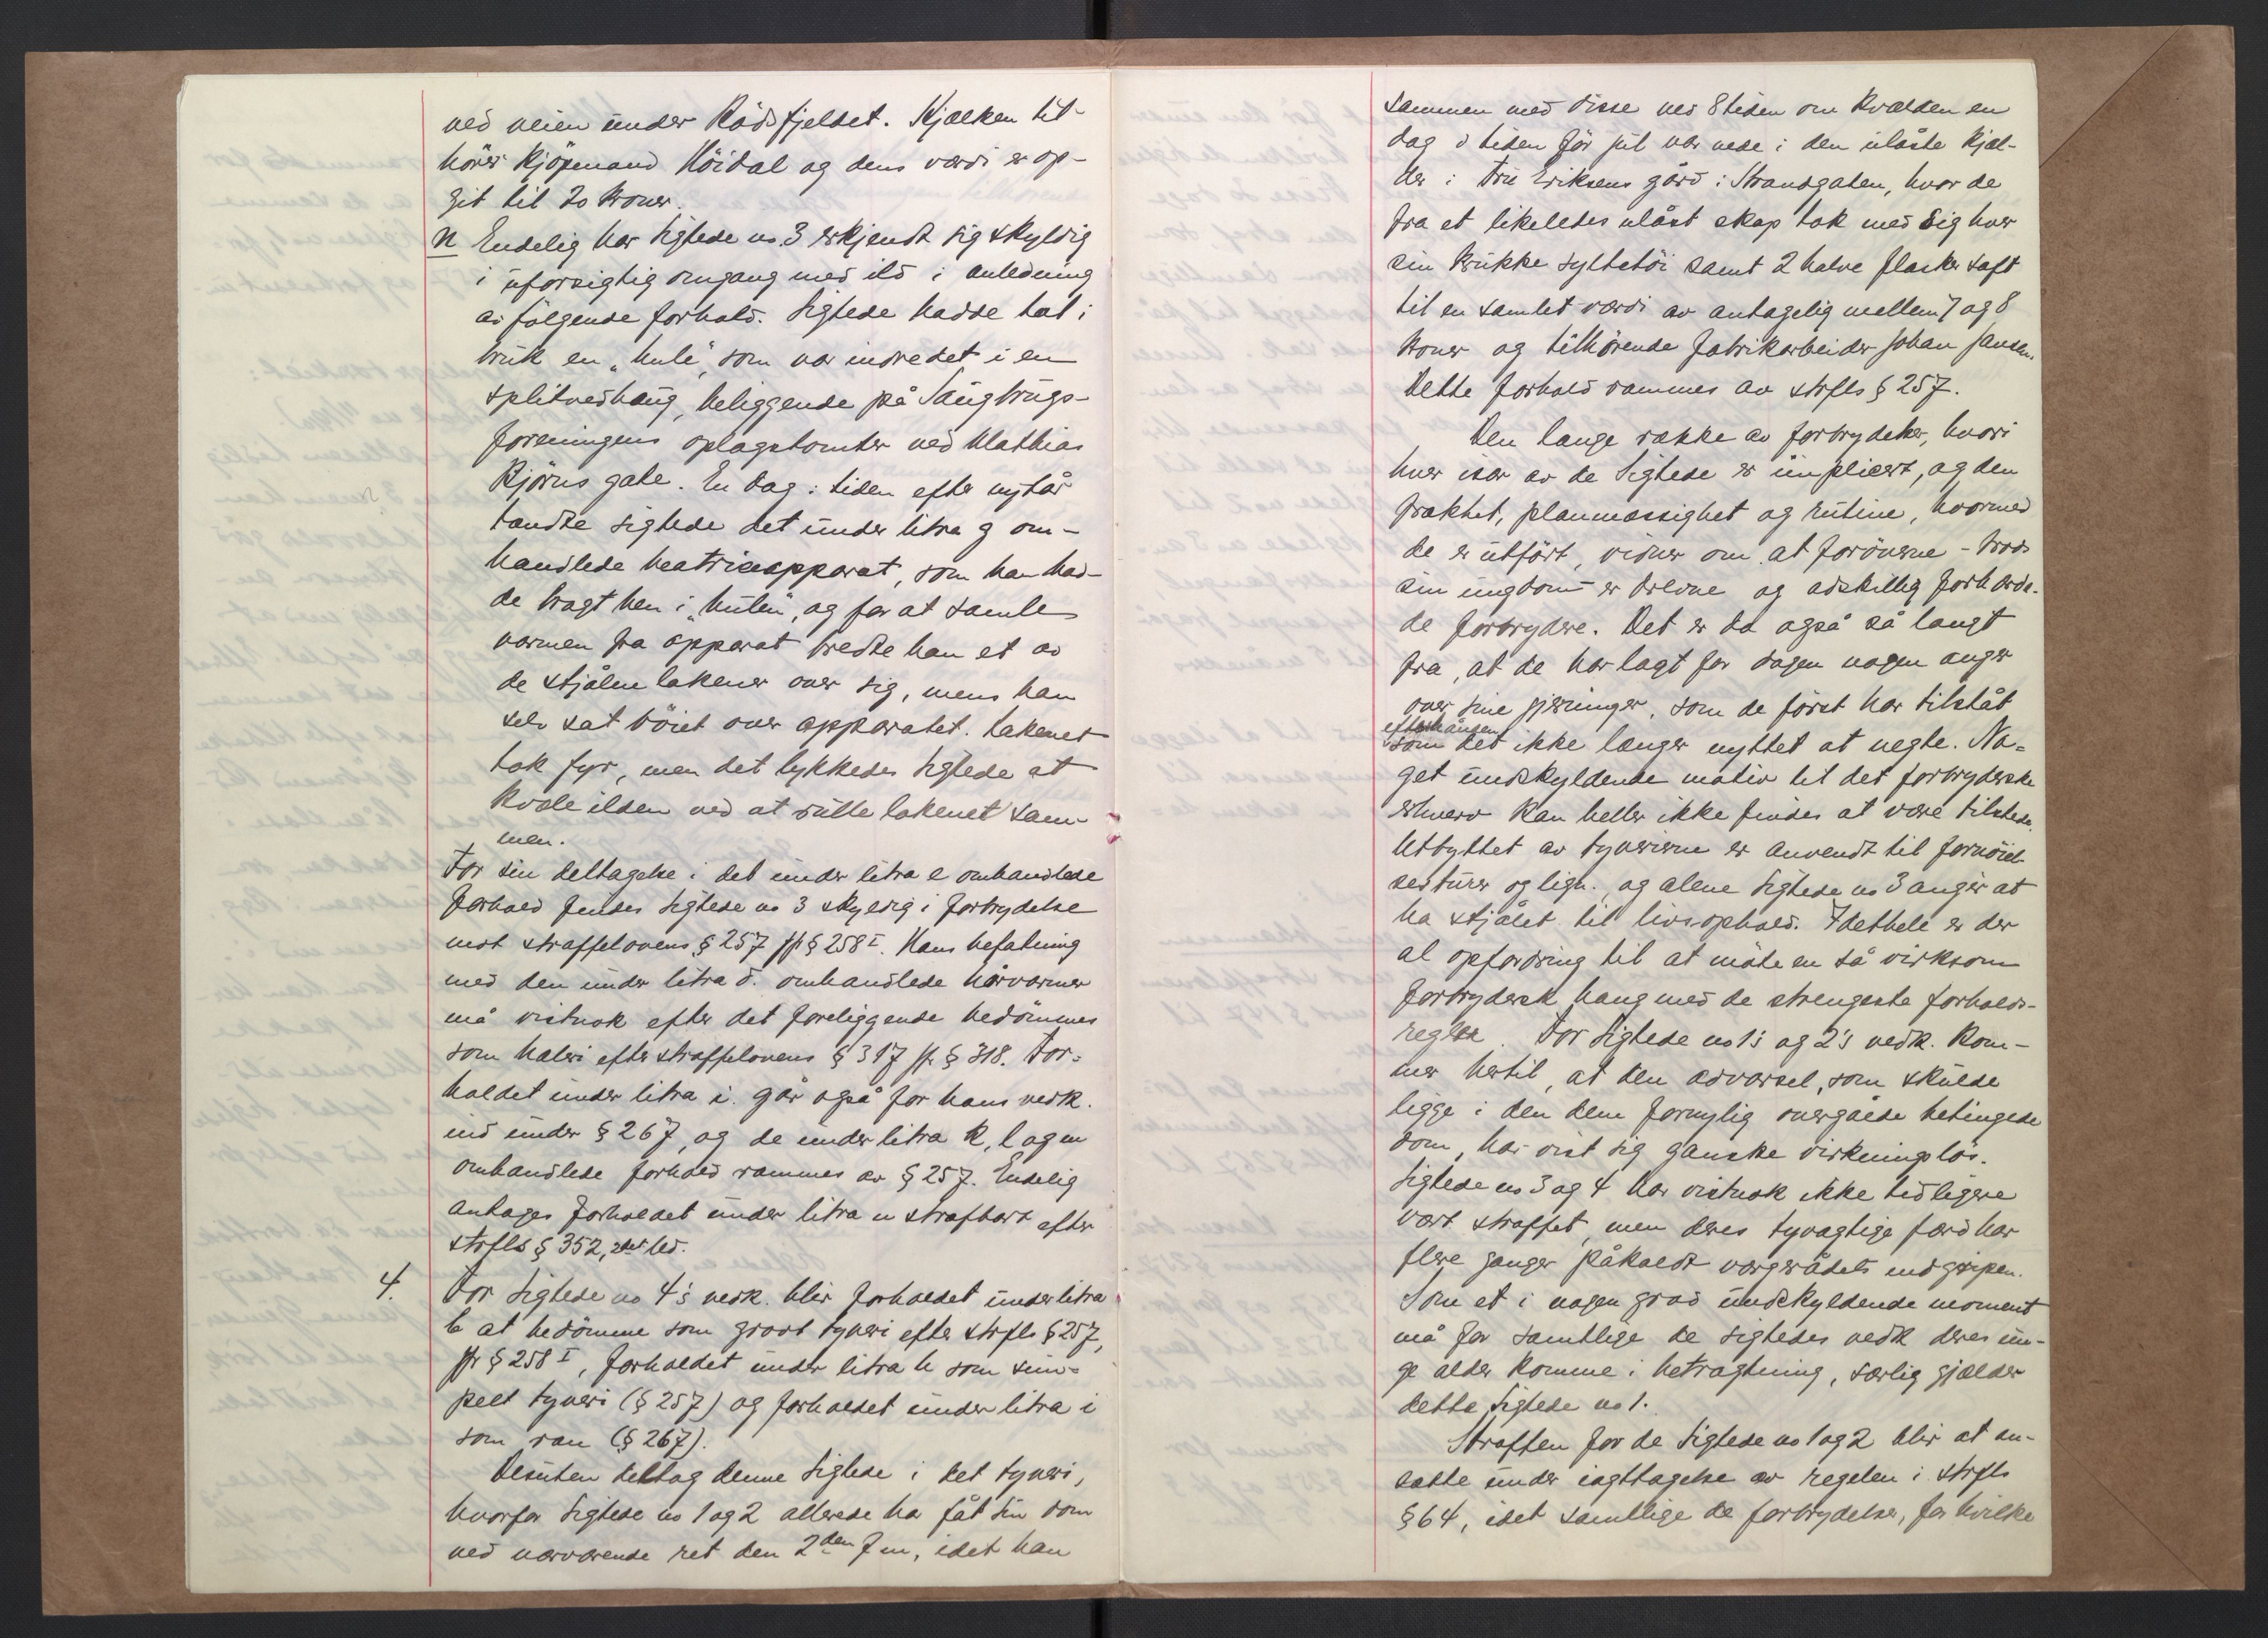 ved veien under Rödsfjeldet. Kjælken til-
hörer kjöpmand Höidal og dens værdi er op-
git til 20 kroner.
n Endelig har sigtede no 3 erkjendt sig skyldig
i uforsigtig omgang med ild i anledning
av fölgende forhold. Sigtede hadde tat i
bruk en "hule", som var indredet i en
splitvedhaug, beliggende på Saugbrugs-
foreningens oplagstomter ved Mathias
Bjørns gate. En dag i tiden efter nytår
tændte sigtede det under litra g om-
handlede beatriceapparat, som han had-
de bragt hen i "hulen", og for at samle
varmen fra apparat bredte han et av
de stjålne lakener over sig, mens han
selv sat böiet over apparatet. Lakenet
tok fyr, men det lykkedes sigtede at
kvæle ilden ved at rulle lakenet sam-
men.
For sin deltagelse i det under litra e omhandlede
forhold findes sigtede no 3 skyldig i forbrydelse
mot straffelovens § 257 jfr § 258 I. Hans befatning
med den under litra d. omhandlede hårvarmer
må vistnok efter det foreliggende bedömmes
som haleri efter straffelovens § 317 jfr. § 318. For-
holdet under litra i. går også for hans vedk.
ind under § 267, og de under litra k, l og m
omhandlede forhold rammes av § 257. Endelig
antages forholdet under litra n strafbart efter
strfls § 352, 2det led.
4. For sigtede no 4's vedk. blir forholdet under litra
b at bedömme som grovt tyveri efter strfls § 257,
jfr § 258 I, forholdet under litra h som sim-
pelt tyveri (§ 257) og forholdet under litra i
som ran (§ 267).
Desuten deltog denne sigtede i det tyveri,
hvorfor sigtede no 1 og 2 allerede har fåt sin dom
ved nærværende ret den 2den f m, idet han
sammen med disse ved 8 tiden om kvælden en
dag i tiden för jul var nede i den ulåste kjæl-
der i Fru Eriksens gård i Strandgaten, hvor de
fra et likeledes ulåst skap tok med sig hver
sin krukke syltetöi samt 2 halve flasker saft
til en samlet værdi av antagelig mellem 7 og 8
kroner og tilhörende fabrikarbeider Johan Jansen.
Dette forhold rammes av strfls § 257.
Den lange række av forbrydelser, hvori
hver især av de sigtede er impliceret, og den
frækhet, planmæssighet og rutine, hvormed
de er utfört, vidner om at foröverne - trods
sin ungdom - er drevne og adskillig forhærde-
de forbrydere. Det er da også så langt
fra, at de har lagt for dagen nogen anger
over sine gjerninger, som de först har tilståt
efterhånden
som det ikke længer nyttet at negte. No-
get undskyldende motiv til det forbryderske
erhverv kan heller ikke findes at være tilstede.
Utbyttet av tyverierne er anvendt til fornöiel-
sesturer og lign., og alene sigtede no 3 angir at
ha stjålet til livsophold. I det hele er der
al opfordring til at möte en så virksom
forbrydersk hang med de strengeste forholds-
regler. For sigtede no 1's og 2's vedk. kom-
mer hertil, at den advarsel, som skulde
ligge i den dem fornylig overgåede betingede
dom, har vist sig ganske virkningslös.
Sigtede no 3 og 4 har vistnok ikke tidligere
vært straffet, men deres tyvagtige færd har
flere ganger påkaldt vergerådets indgripen.
Som et i nogen grad undskyldende moment
må for samtlige de sigtedes vedk deres un-
ge alder komme i betragtning, særlig gjælder
dette sigtede no 1.
Straffen for de sigtede no 1 og 2 blir at an-
sætte under iagttagelse av regelen i strfls
§ 64, idet samtlige de forbrydelser, for hvilke